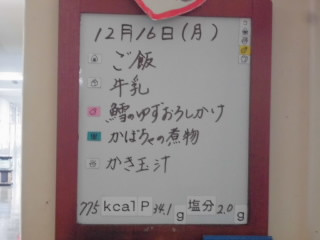 12月16日(月)
ご飯
牛乳
鱈のゆずおろしかけ
かぼちゃの煮物
かき玉汁
775 kcal P 34.1 g 塩分 2.0 g